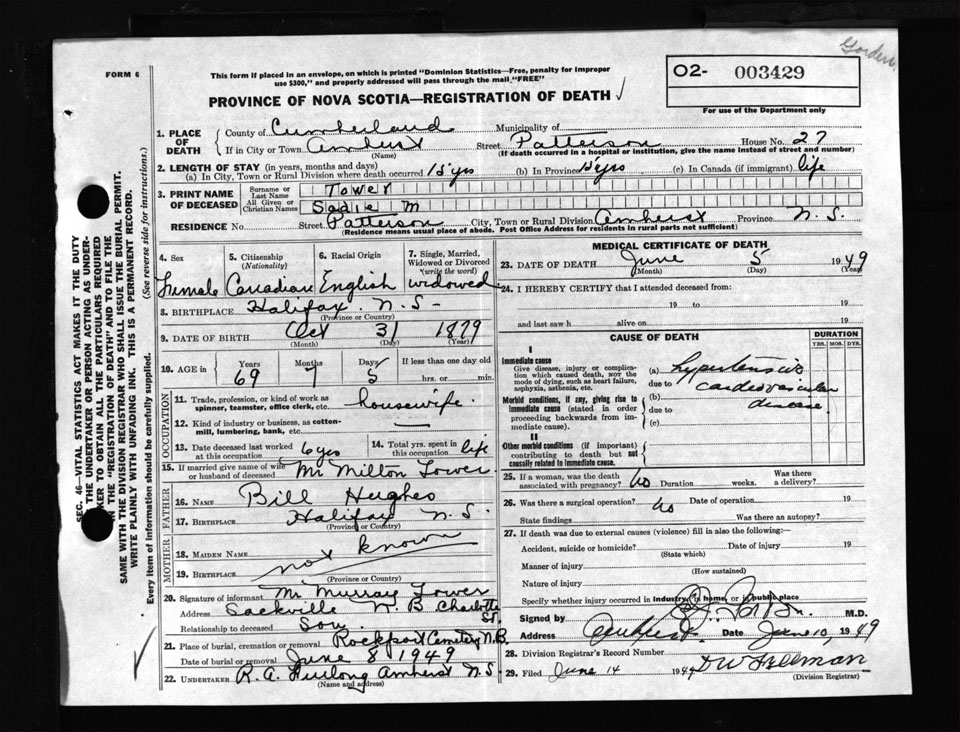 Gordon
FORM 6
This form if placed in an envelope, on which is printed "Dominion Statistics—Free, penalty for improper
use $300," and properly addressed will pass through the mail "FREE"
PROVINCE OF NOVA SCOTIA—REGISTRATION OF DEATH
02- 003429
For use of the Department only
1. PLACE OF DEATH
County of Cumberland Municipality of
If in City or Town Amherst Street Patterson House No. 27
(Name) (If death occurred in a hospital or institution, give the name instead of street and number)
2. LENGTH OF STAY (in years, months and days)
(a) In City, Town or Rural Division where death occurred 15 yrs (b) In Province 15 yrs (c) In Canada (if immigrant) life
3. PRINT NAME OF DECEASED
Surname or Last Name Tower
All Given or Christian Names Sadie M
RESIDENCE No. Street Patterson City, Town or Rural Division Amherst Province N.S.
(Residence means usual place of abode. Post Office Address for residents in rural parts not sufficient)
4. Sex 5. Citizenship (Nationality) 6. Racial Origin 7. Single, Married, Widowed or Divorced (write the word)
Female Canadian English widowed
8. BIRTHPLACE Halifax N.S-
(Province or Country)
9. DATE OF BIRTH Oct 31 1879
(Month) (Day) (Year)
10. AGE in Years Months Days If less than one day old
69 7 5 hrs. or min.
OCCUPATION
11. Trade, profession, or kind of work as spinner, teamster, office clerk, etc. housewife.
12. Kind of industry or business, as cotton-mill, lumbering, bank, etc. —
13. Date deceased last worked at this occupation 6 yrs 14. Total yrs. spent in this occupation life
15. If married give name of wife or husband of deceased Mr Milton Tower
FATHER
16. NAME Bill Hughes
17. BIRTHPLACE Halifax N.S.
(Province or Country)
MOTHER
18. MAIDEN NAME not known
19. BIRTHPLACE
(Province or Country)
20. Signature of informant Mr Murray Tower
Address Sackville N B Charlotte St.
Relationship to deceased Son.
21. Place of burial, cremation or removal Rockport Cemetery N.B
Date of burial or removal June 8 1949
22. UNDERTAKER R.A. Furlong Amherst N.S.
(Name and address)
MEDICAL CERTIFICATE OF DEATH
23. DATE OF DEATH June 5 1949
(Month) (Day) (Year)
24. I HEREBY CERTIFY that I attended deceased from:
19 to 19
and last saw h alive on 19
CAUSE OF DEATH
DURATION
YRS. MOS. DYS.
I
Immediate cause
Give disease, injury or complication which caused death, NOT the mode of dying, such as heart failure, asphyxia, asthenia, etc.
(a) hypertensive
due to cardiovascular
Morbid conditions, if any, giving rise to immediate cause (stated in order proceeding backwards from immediate cause).
(b) disease.
due to
(c)
II
Other morbid conditions (if important) contributing to death but not causally related to immediate cause.
25. If a woman, was the death associated with pregnancy? no Duration weeks. Was there a delivery?
26. Was there a surgical operation? no Date of operation 19
State findings Was there an autopsy?
27. If death was due to external causes (violence) fill in also the following:
Accident, suicide or homicide? Date of injury 19
(State which)
Manner of injury
(How sustained)
Nature of injury
Specify whether injury occurred in industry, in home, or in public place
Signed by M.D.
Address Amherst. Date June 10, 1949
28. Division Registrar's Record Number
29. Filed June 14 1949 D W Fillman
(Division Registrar)
SEC. 46—VITAL STATISTICS ACT MAKES IT THE DUTY
THE UNDERTAKER OR PERSON ACTING AS UNDER-
KER TO OBTAIN ALL THE PARTICULARS REQUIRED
N THE "REGISTRATION OF DEATH" AND TO FILE THE
SAME WITH THE DIVISION REGISTRAR WHO SHALL ISSUE THE BURIAL PERMIT.
WRITE PLAINLY WITH UNFADING INK. THIS IS A PERMANENT RECORD.
Every item of information should be carefully supplied. (See reverse side for instructions.)